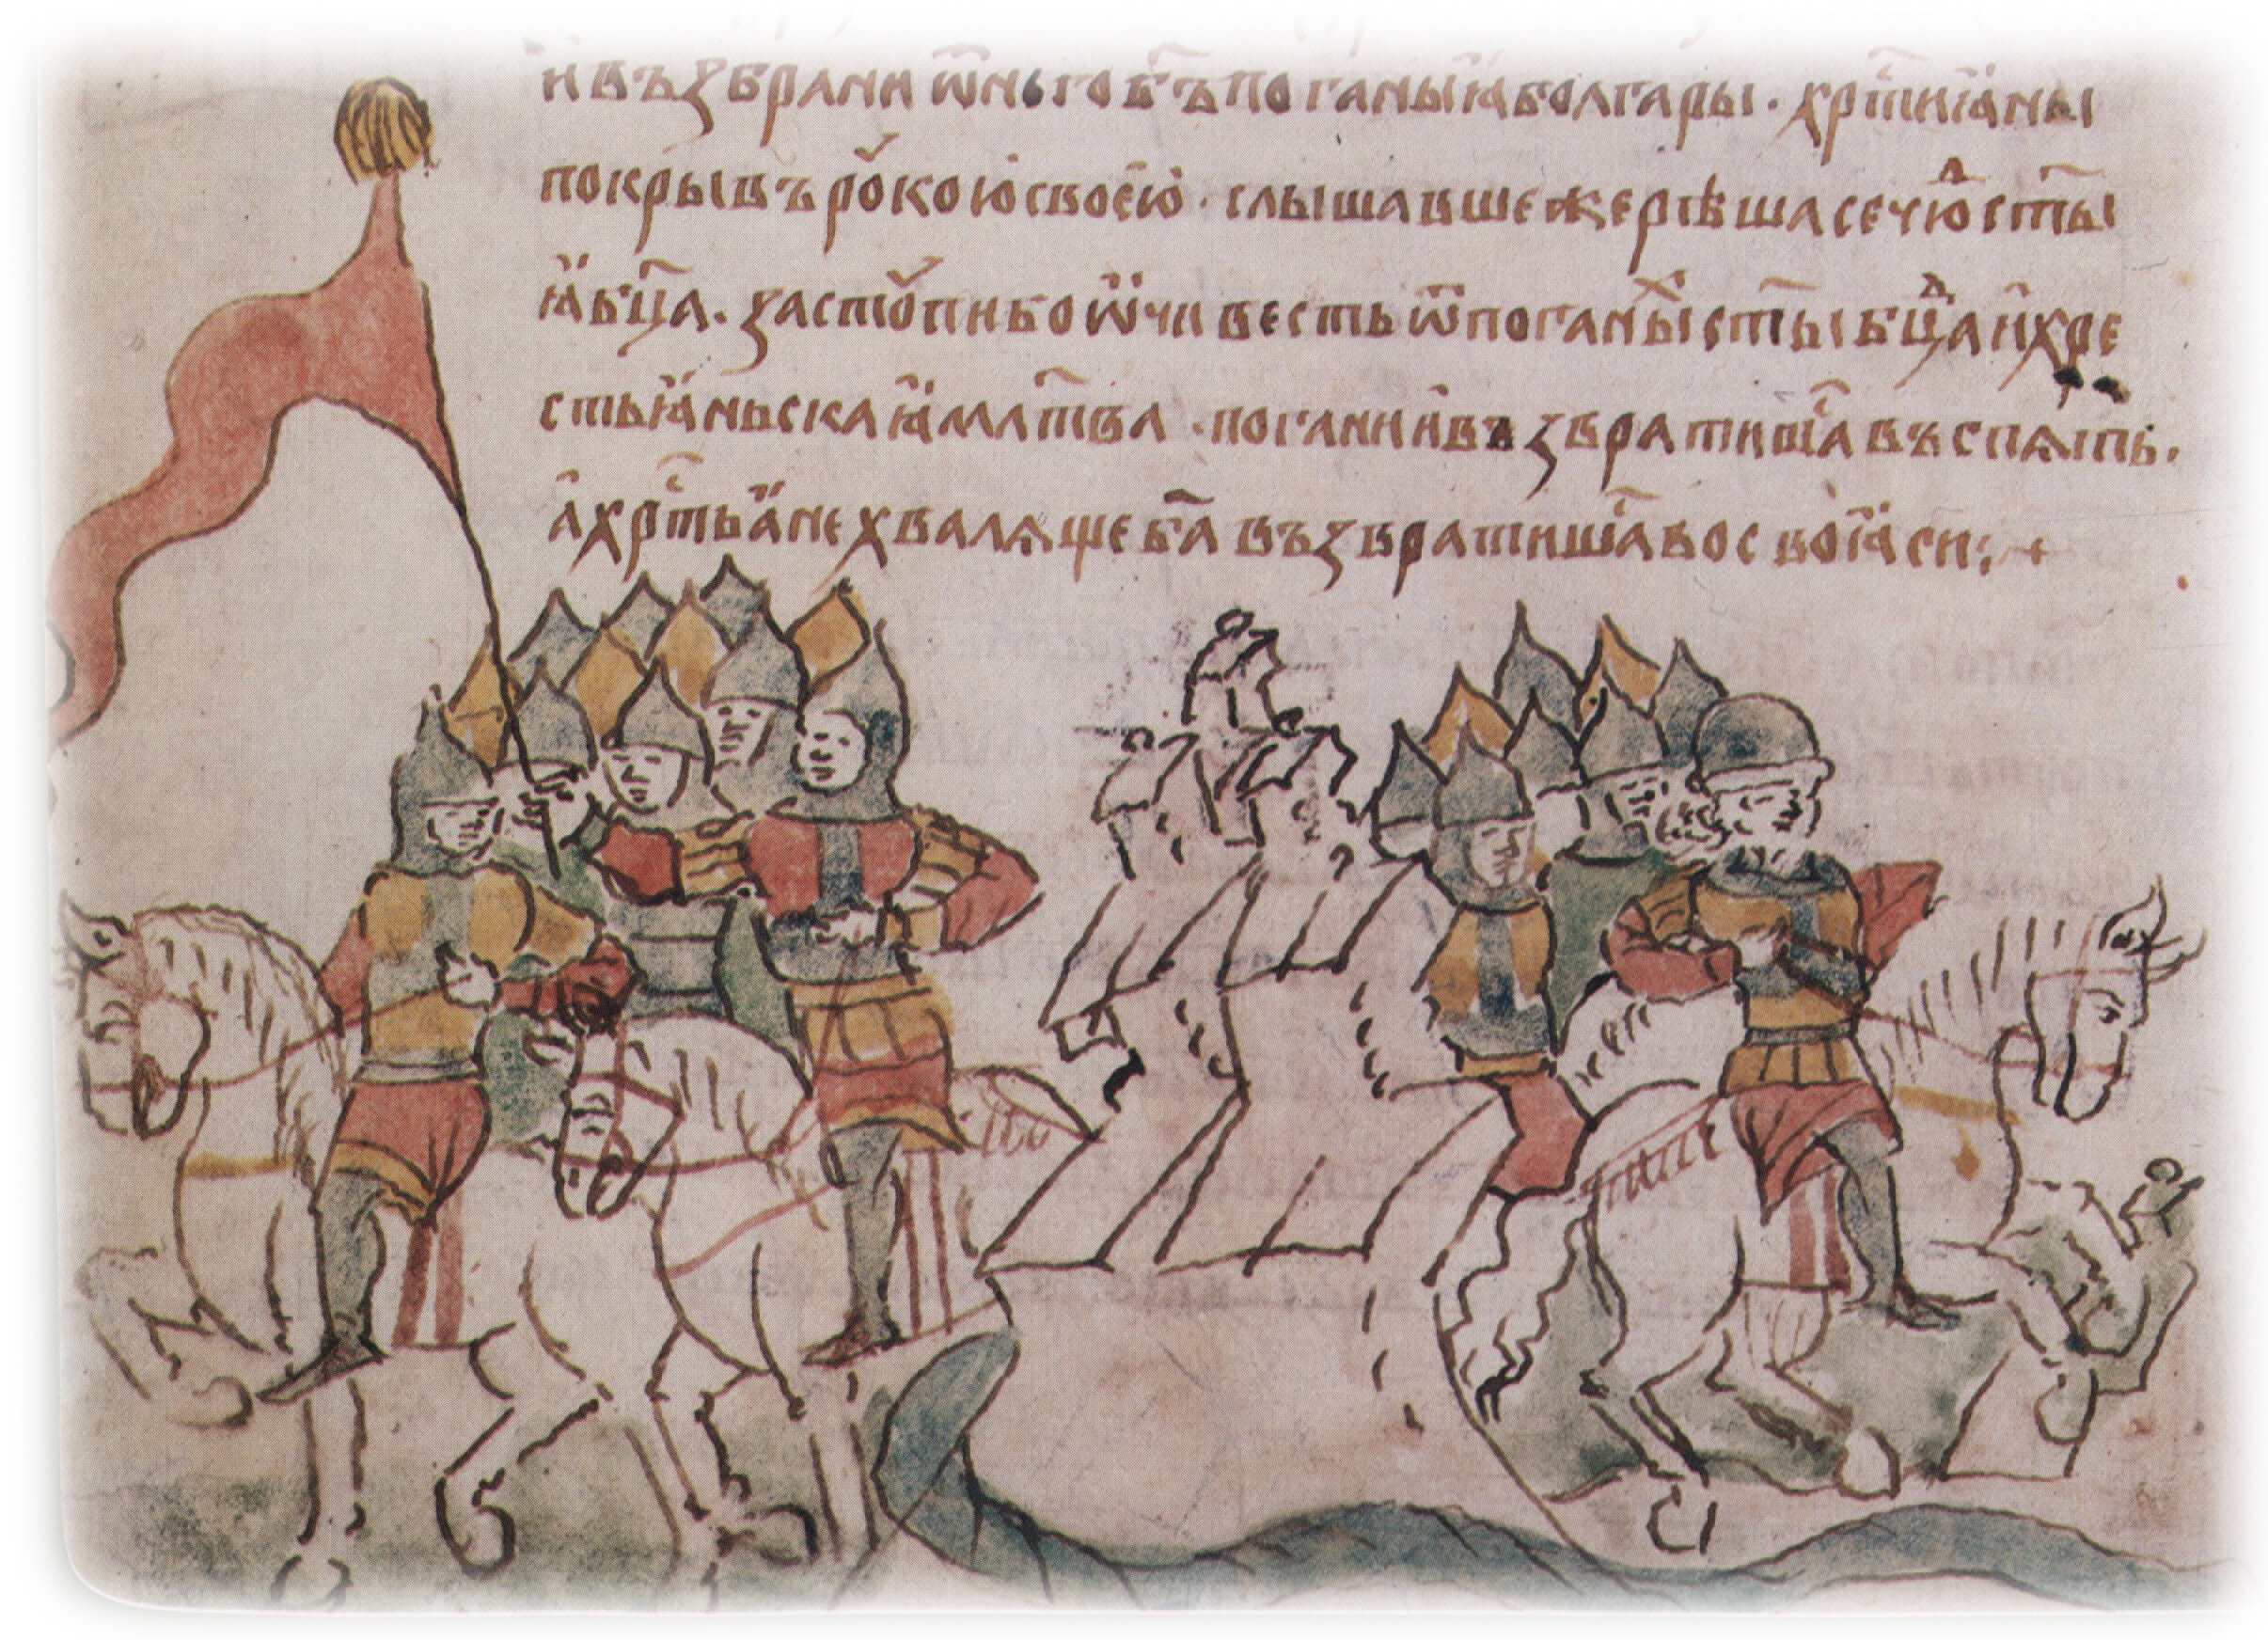 и въꙁбрани ѿ нього б҃ъ поганыꙗ болгары · хрⷭ҇тиꙗны
покрывъ рꙋкою своею · слышавше же рѣша се чюⷣ ст҃ы
ꙗ бц҃а · ꙁастꙋпи бо ѿчи весть ѿ поганыⷯ ст҃ы бцⷣа и хре
стьꙗньскаꙗ млт҃ва · погании въꙁвратишаⷭ҇ въспѧть ·
а хрⷭ҇тьꙗне хвалѧще ба҃ въꙁвратишаⷭ҇ во своꙗси :~